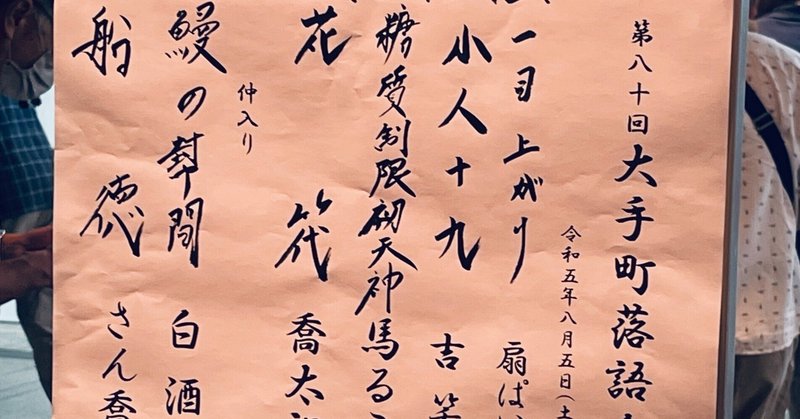 第八十回 大手町落語
令和五年八月五日(土
一目上がり 扇ぱ
小人十九 吉笑
糖質制限初天神 馬る
花筏 喬太郎
仲入り
鰻の幇間 白酒
船徳 さん喬